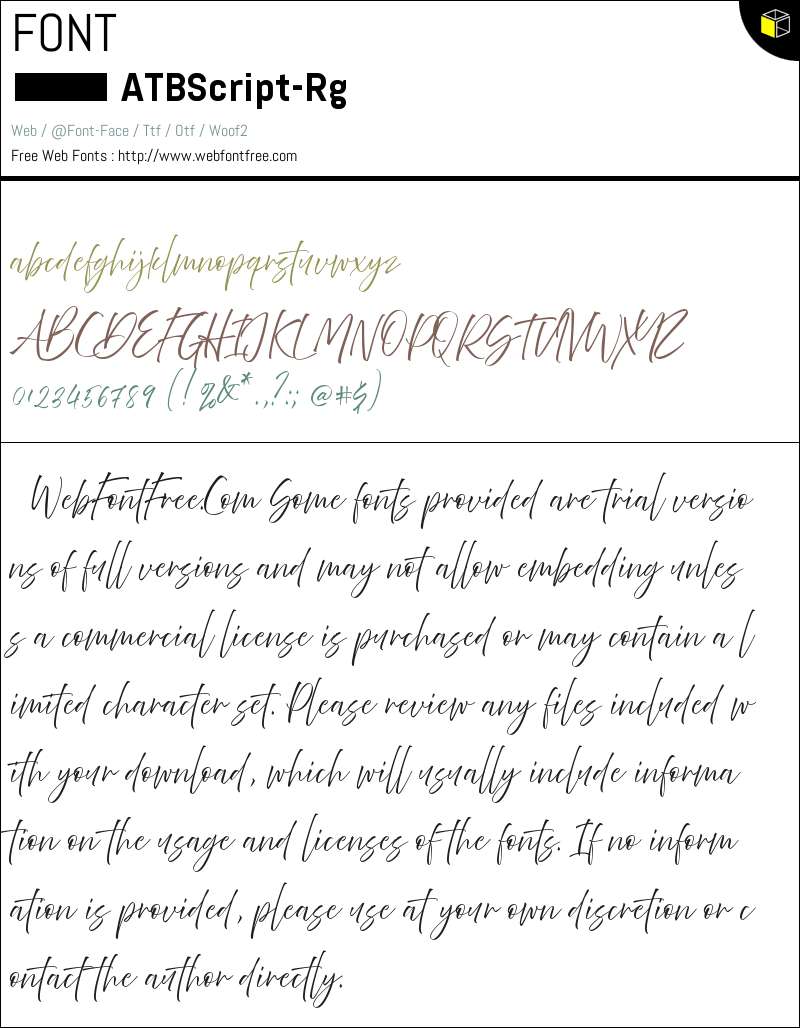 FONT
ATBScript-Rg
Web / @Font-Face / Ttf / Otf / Woof2
Free Web Fonts : http://www.webfontfree.com
abcdefghijklmnopqrstuvwxyz
ABCDEFGHIJKLMNOPQRSTUVWXYZ
0123456789 (!%&*.,?:; @#$)
WebFontFree.Com Some fonts provided are trial versio
ns of full versions and may not allow embedding unles
s a commercial license is purchased or may contain a l
imited character set. Please review any files included w
ith your download, which will usually include informa
tion on the usage and licenses of the fonts. If no inform
ation is provided, please use at your own discretion or c
ontact the author directly.